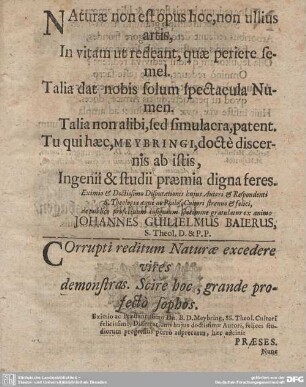 NAturæ non est opus hoc, non ullius
artis,
In vitam ut redeant, quæ periere se-
mel.
Talia dat nobis solum spectacula Nu-
men.
Talia non alibi, sed simulacra, patent.
Tu qui hæc, MEYBRINGI, doctè discer-
nis ab istis,
Ingenii & studii præmia digna feres.
Eximio & Doctissimo Disputationis hujus Autori & Respondenti
S. Theologiæ æque ac Philos. Cultori strenuo & felici,
gratulatur ex animo
JOHANNES GUILIELMUS BAIERUS,
S. Theol. D. & P.P.
COrrupti reditum Naturæ excedere
vires
demonstras. Scire hoc, grande pro-
fectò sophos.
Eximio ac Præstantissimo Dn. Meybring, SS. Theol. Cultori
felicissimo, Disputationis hujus doctissimæ Autori, felices stu-
diorum progressus porrò adprecatur
PRÆSES.
Nunc